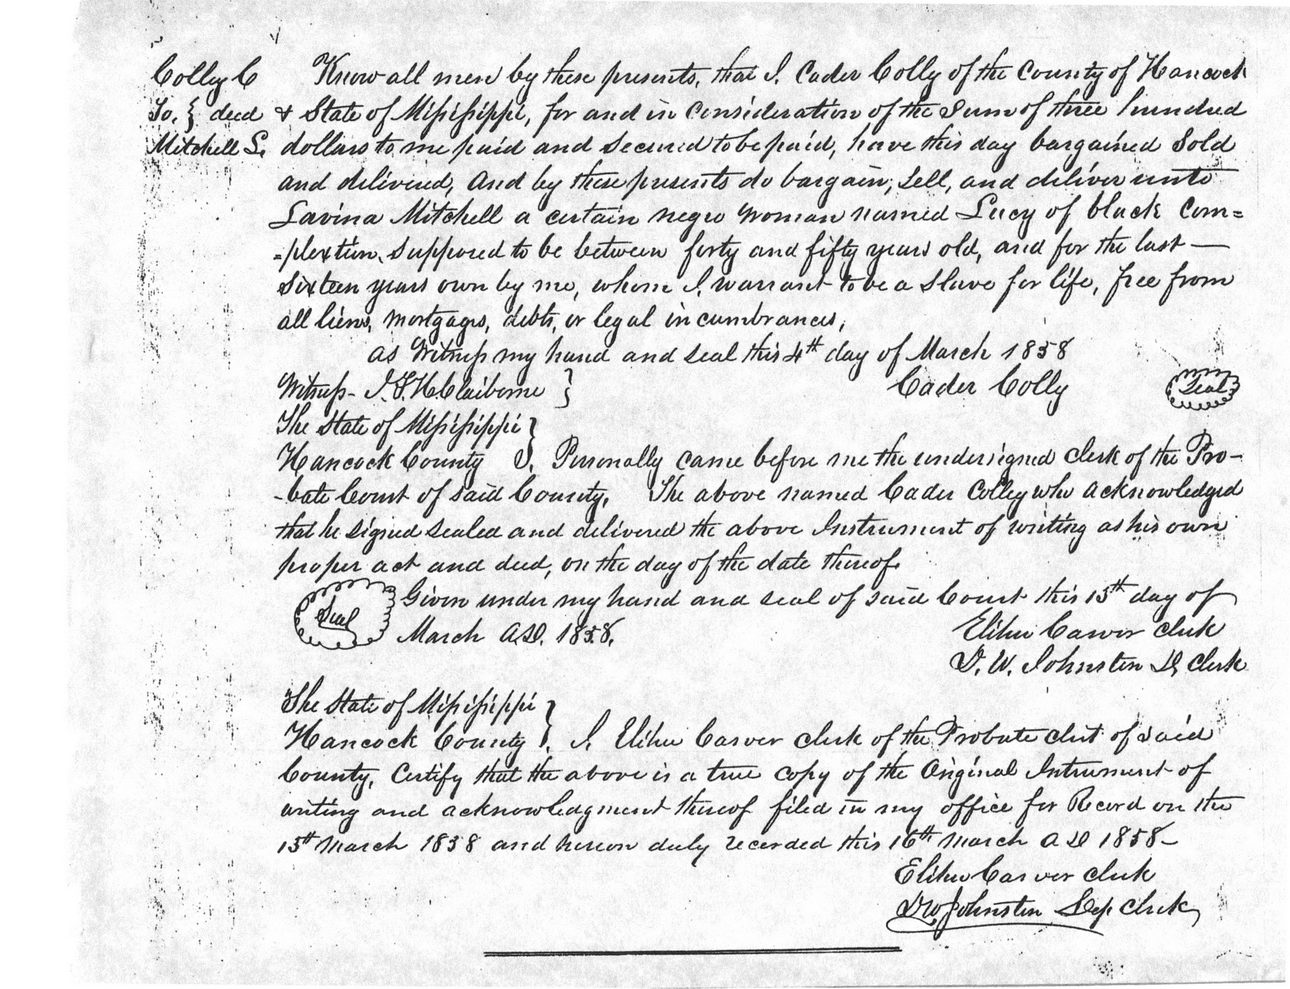 Colly C
To. } deed
Mitchell L.
Know all men by these presents, that I. Cader Colly of the County of Hancock
& State of Mississippi, for and in consideration of the Sum of three hundred
dollars to me paid and secured to be paid, have this day bargained Sold
and delivered, And by these presents do bargain, Sell, and deliver unto
Lavina Mitchell a certain negro woman named Lucy of black com=
=plextion, supposed to be between forty and fifty years old, and for the last —
Sixteen years own by me, whom I. warrant to be a Slave for life, free from
all liens, mortgages, debts, or legal incumbrances,
as Witness my hand and seal this 4th day of March 1858
Witness - J. F. H. Claiborne } Cader Colly Seal
The State of Mississippi }
Hancock County S. Personally came before me the undersigned clerk of the Pro-
-bate Court of said County, The above named Cader Colley who acknowledged
that he signed sealed and delivered the above Instrument of writing as his own
proper act and deed, on the day of the date thereof.
Seal Given under my hand and seal of said Court this 15th day of
March A.D. 1858.
Elihu Carver clerk
D. W. Johnston D, Clerk
The State of Mississippi }
Hancock County } I. Elihu Carver clerk of the Probate clrt of said
County, Certify that the above is a true copy of the Original Instrument of
writing and acknowledgment thereof filed in my office for Record on the
15th March 1858 and hereon duly recorded this 16th March A D 1858 -
Elihu Carver clerk
DW Johnston Dep Clerk,